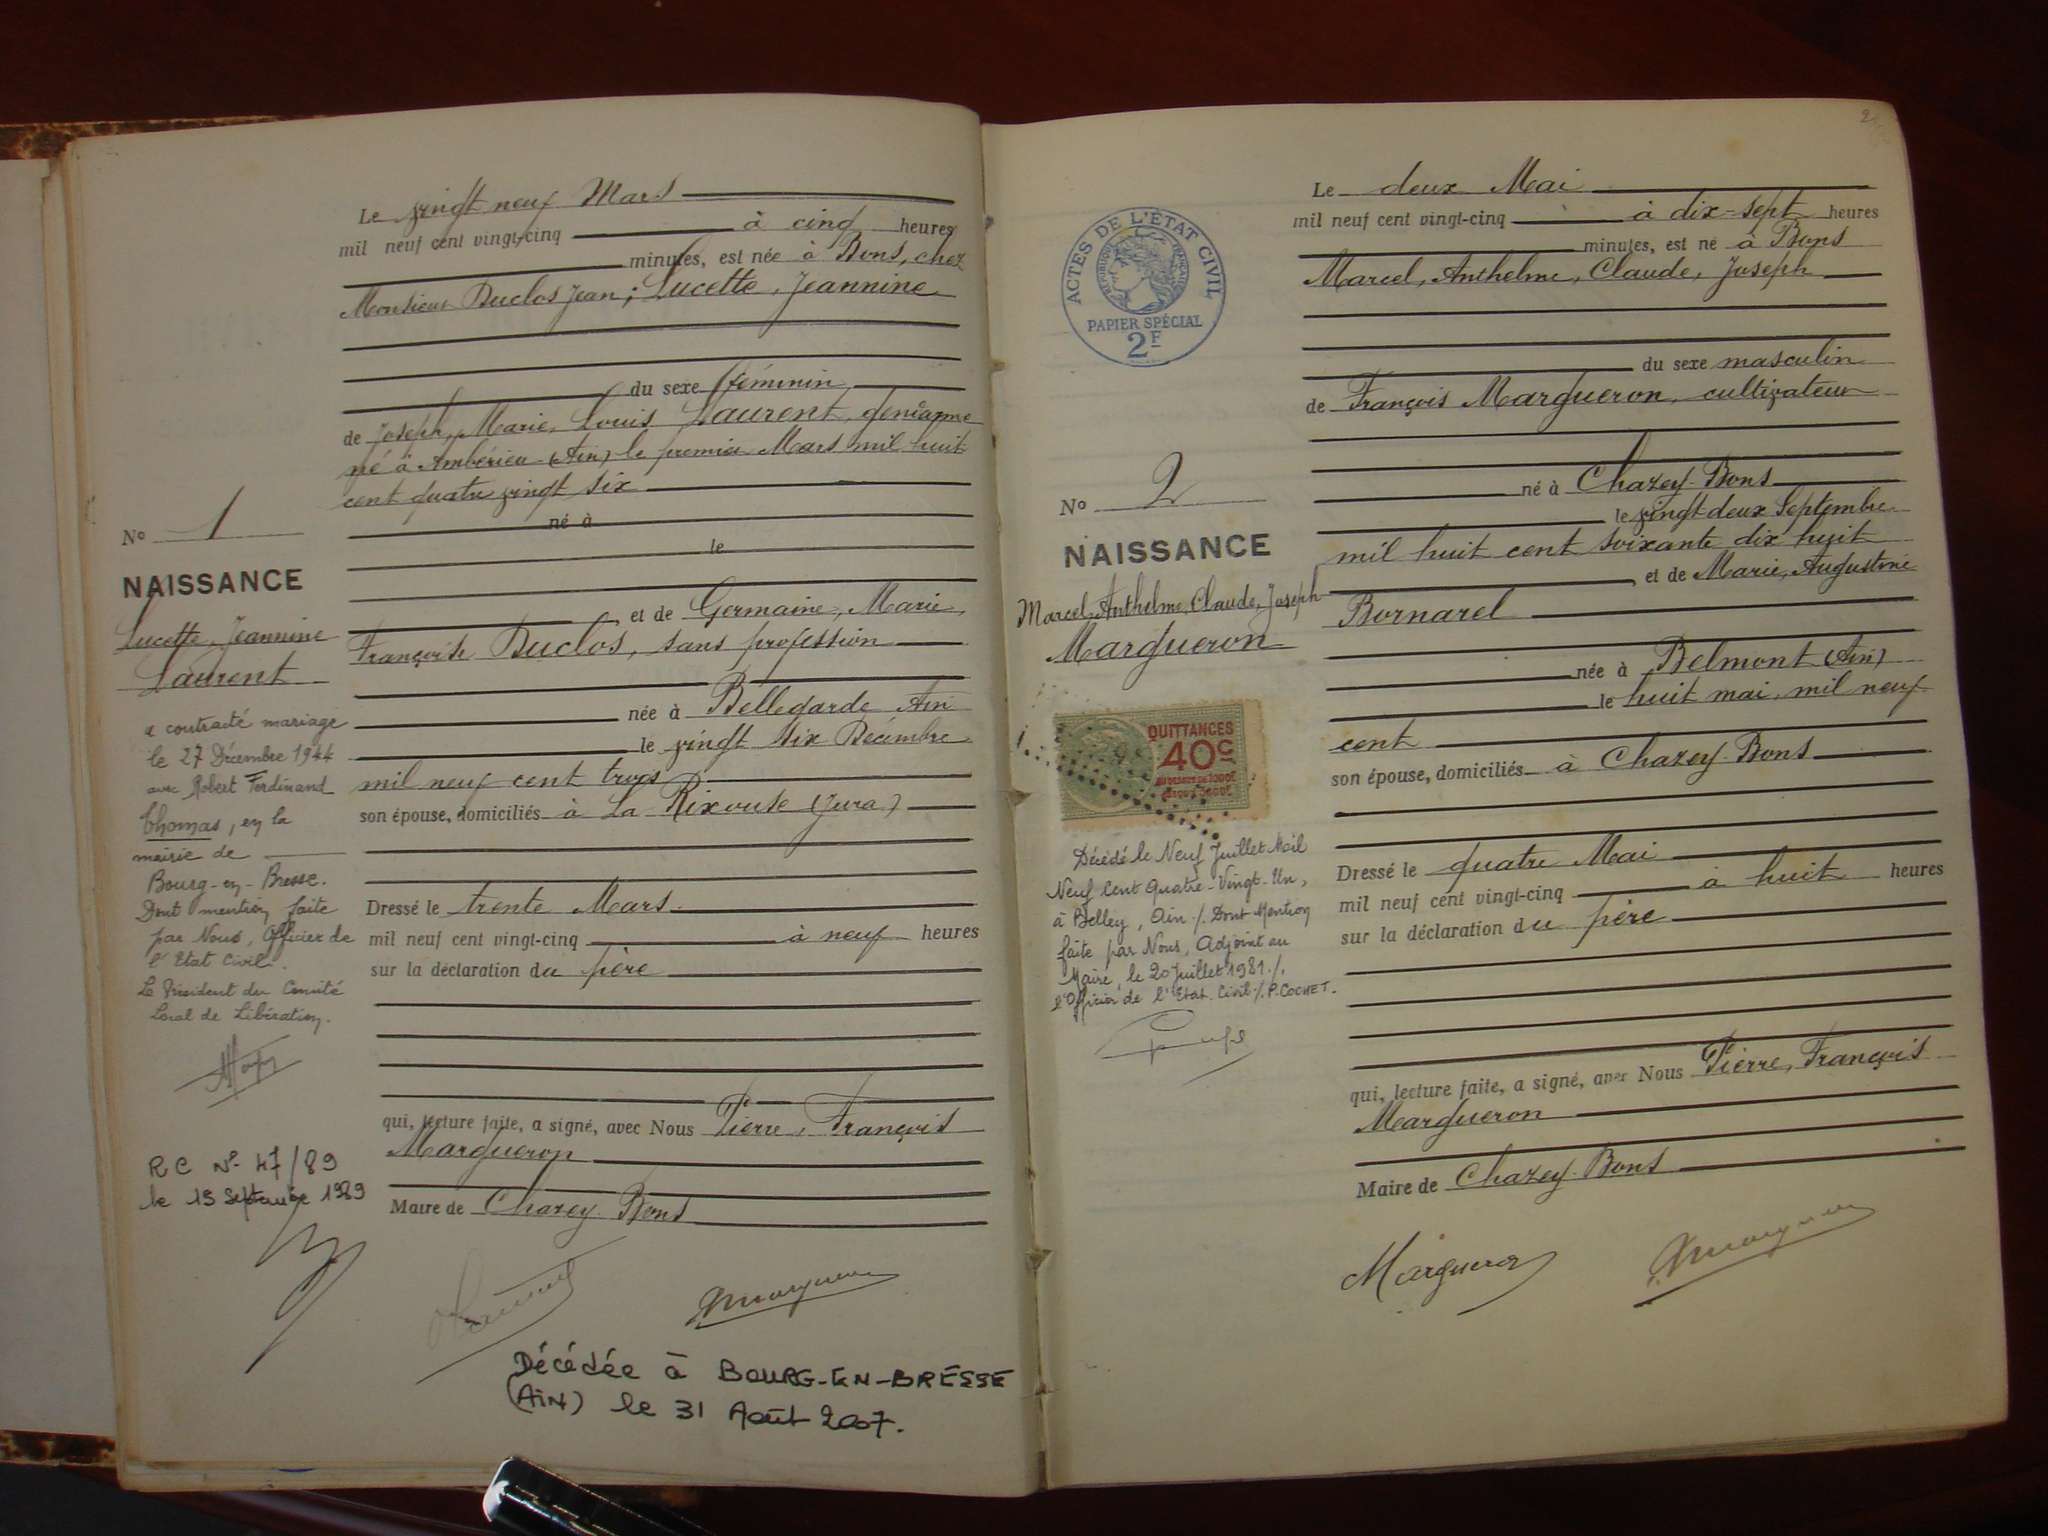 Le vingt neuf Mars
mil neuf cent vingt-cinq à cinq heures
minutes, est née à Bons, chez
Monsieur Duclos Jean; Lucette, Jeannine
du sexe féminin
de Joseph, Marie, Louis Laurent, gendarme
né à Ambérieu (Ain) le premier Mars mil huit
cent quatre vingt six
né à
le
et de Germaine, Marie,
Françoise Duclos, sans profession
née à Bellegarde Ain
le vingt six Décembre
mil neuf cent trois
son épouse, domiciliés à La Rixouse (Jura)
Dressé le trente Mars
mil neuf cent vingt-cinq à neuf heures
sur la déclaration du père
qui, lecture faite, a signé, avec Nous Pierre, François
Margueron
Maire de Chazey-Bons
No 1
NAISSANCE
Lucette, Jeannine
Laurent
a contracté mariage
le 27 Décembre 1944
avec Robert Ferdinand
Thomas, en la
mairie de
Bourg-en-Bresse.
Dont mention faite
par Nous, Officier de
l'Etat Civil.
Le Président du Comité
Local de Libération.
RC N° 47/89
le 19 Septembre 1989
Décédée à BOURG-EN-BRESSE
(AIN) le 31 Août 2007.
2
Le deux Mai
mil neuf cent vingt-cinq à dix-sept heures
minutes, est né à Bons
Marcel, Anthelme, Claude, Joseph
du sexe masculin
de François Margueron, cultivateur
né à Chazey-Bons
le vingt deux Septembre
mil huit cent soixante dix huit
et de Marie, Augustine
Bornarel
née à Belmont (Ain)
le huit mai, mil neuf
cent
son épouse, domiciliés à Chazey-Bons
Dressé le quatre Mai
mil neuf cent vingt-cinq à huit heures
sur la déclaration du père
qui, lecture faite, a signé, avec Nous Pierre, François
Margueron
Maire de Chazey-Bons
Margueron
ACTES DE L'ÉTAT CIVIL
RÉPUBLIQUE FRANÇAISE
PAPIER SPÉCIAL
2F
No 2
NAISSANCE
Marcel, Anthelme, Claude, Joseph
Margueron
QUITTANCES
40c
Décédé le Neuf Juillet Mil
Neuf Cent Quatre-Vingt-Un,
à Belley, Ain ./. Dont Mention
faite par Nous, Adjoint au
Maire, le 20 Juillet 1981 ./.
l'Officier de l'Etat Civil ./. P. COCHET.